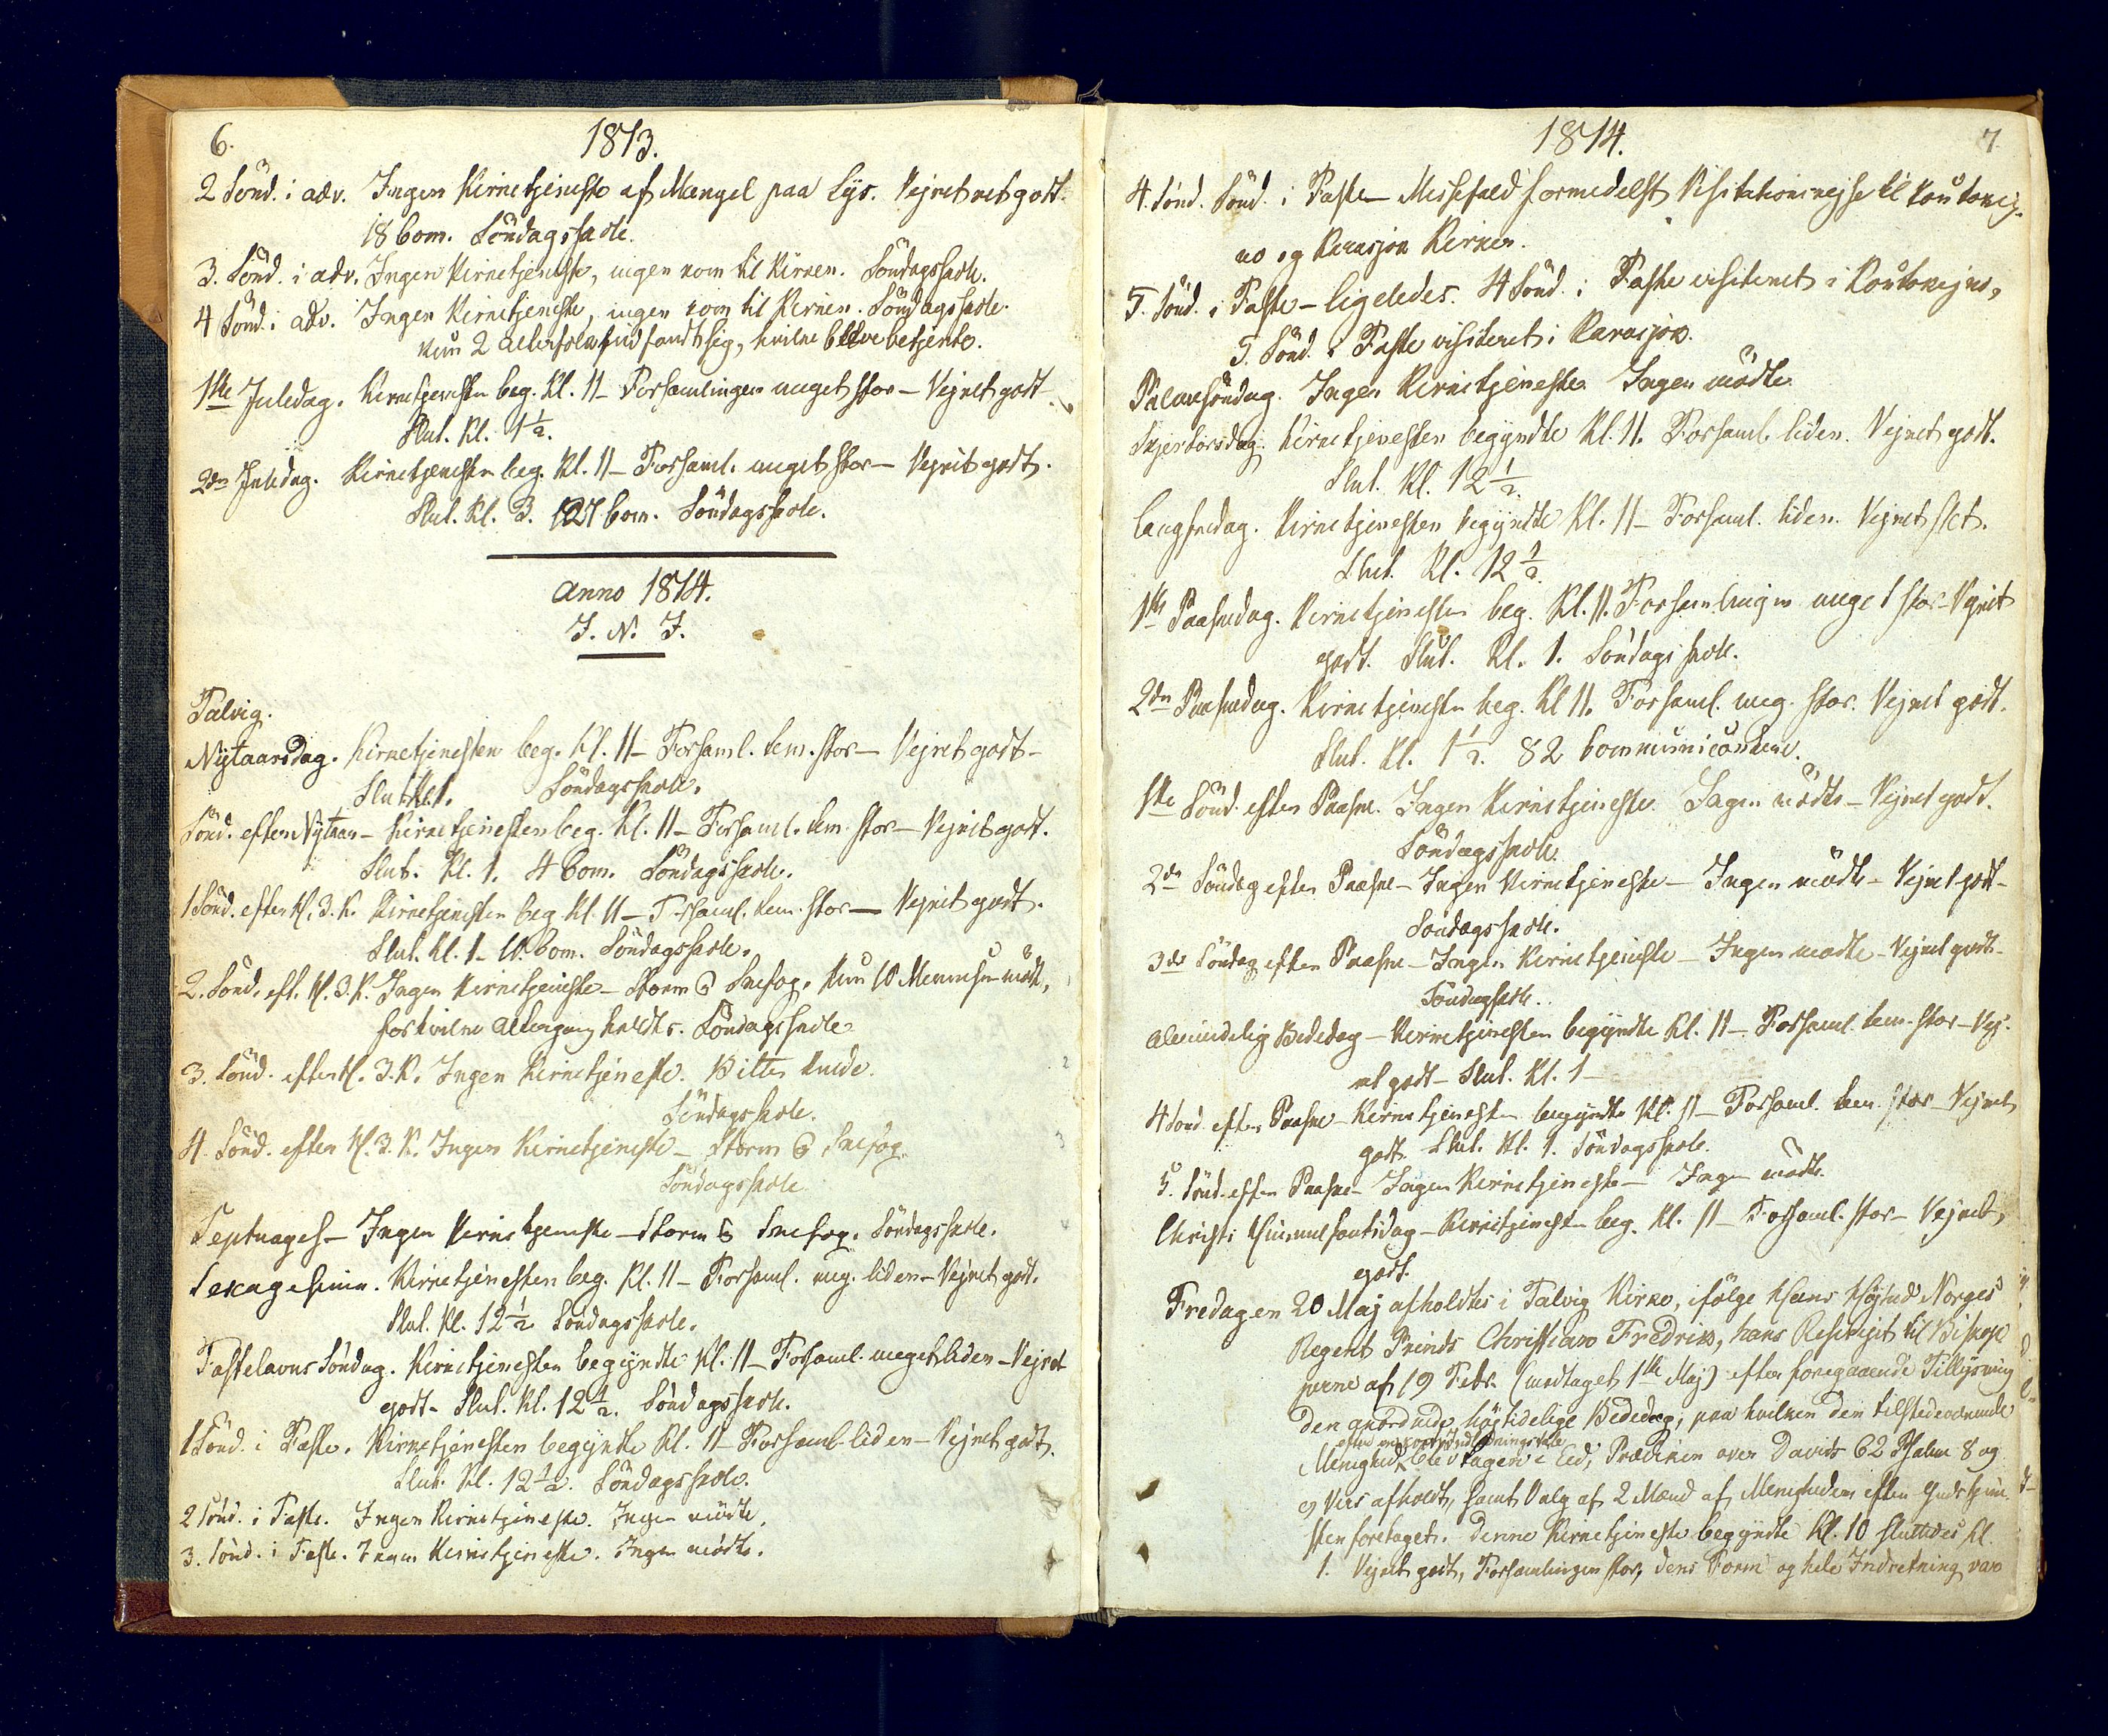 6.
1813.
2 Sönd. i adv. Ingen Kirketjeneste af Mangel paa Lys. Vejret ret godt.
18 Com. Söndagsskole.
3. Sönd. i adv. Ingen Kirketjeneste, ingen kom til Kirken. Söndagsskole.
4 Sönd. i adv. Ingen Kirketjeneste, ingen kom til Kirken. Söndagsskole.
kun 2 Alterfolk indfandt sig, hvilke bleve betjente.
1ste Juledag. Kirketjenesten beg. Kl. 11 – Forsamlingen meget stor – Vejret godt.
Slut. Kl. 1½.
2den Juledag. Kirketjenesten beg. Kl. 11 – Forsaml. meget stor – Vejret godt.
Slut. Kl. 3. 127 Com. Söndagsskole.
Anno 1814.
I. N. J.
Talvig.
Nytaarsdag. Kirketjenesten beg. Kl. 11 – Forsaml. tem. stor – Vejret godt –
Slut Kl. 1. Söndagsskole.
Sönd. efter Nytaar – Kirketjenesten beg. Kl. 11 – Forsaml. tem. stor – Vejret godt.
Slut. Kl. 1. 4 Com. Söndagsskole.
1 Sönd. efter H. 3. K. Kirketjenesten beg. Kl. 11 – Forsaml. tem. stor – Vejret godt.
Slut. Kl. 1 – 10 Com. Söndagsskole.
2. Sönd. eft. H. 3. K. Ingen Kirketjeneste – Storm & Snefog. Kun 10 Mennesker mödte,
for hvilke Altergang holdtes. Söndagsskole.
3. Sönd. efter H. 3. K. Ingen Kirketjeneste. Bitter Kulde.
Söndagsskole.
4. Sönd. efter H. 3. K. Ingen Kirketjeneste – Storm & Snefog.
Söndagsskole
Septuages – Ingen Kirketjeneste – Storm & Snefog. Söndagsskole.
Sexagesima. Kirketjenesten beg. Kl. 11 – Forsaml. meg. liden – Vejret godt.
Slut. Kl. 12½ Söndagsskole.
Fastelavns Söndag. Kirketjenesten begyndte Kl. 11 – Forsaml. meget liden – Vejret
godt – Slut. Kl. 12½. Söndagsskole.
1 Sönd. i Faste. Kirketjenesten begyndte Kl. 11 – Forsaml. liden – Vejret godt.
Slut. Kl. 12½. Söndagsskole.
2 Sönd. i Faste. Ingen Kirketjeneste. Ingen mödte.
3. Sönd. i Faste. Ingen Kirketjeneste. Ingen mödte.
1814.
7
4. Sönd. Sönd. i Faste – Messefald formedelst Visitationsrejse til Koutokej-
no og Karasjok Kirker.
5. Sönd. i Faste – ligeledes. 4 Sönd. i Faste visiteret i Koutokejno,
5. Sönd. i Faste visiteret i Karasjok.
Palmesöndag. Ingen Kirketjeneste. Ingen mödte.
Skjertorsdag. Kirketjenesten begyndte Kl. 11. Forsaml. liden. Vejret godt.
Slut. Kl. 12½.
Langfredag. Kirketjenesten begyndte Kl. 11 – Forsaml. liden. Vejret slet.
Slut. Kl. 12½.
1ste Paaskedag. Kirketjenesten beg. Kl. 11. Forsamlingen meget stor – Vejret
godt. Slut. Kl. 1. Söndagsskole.
2den Paaskedag. Kirketjenesten beg. Kl 11. Forsaml. meg. stor. Vejret godt.
Slut. Kl. 1½. 82 Communicantere.
1ste Sönd. efter Paaske. Ingen Kirketjeneste. Ingen mödte – Vejret godt.
Söndagsskole.
2den Söndag efter Paaske – Ingen Kirketjeneste – Ingen mödte – Vejret godt –
Söndagsskole.
3die Söndag efter Paaske – Ingen Kirketjeneste – Ingen mödte – Vejret godt –
Söndagsskole.
Almindelig Bededag – Kirketjenesten begyndte Kl. 11 – Forsaml. tem. stor – Vej-
ret godt – Slut. Kl. 1 –
4 Sönd. efter Paaske – Kirketjenesten begyndte Kl. 11 – Forsaml. tem. stor – Vejret
godt. Slut. Kl. 1. Söndagsskole.
5. Sönd. efter Paaske – Ingen Kirketjeneste – Ingen mödte.
Christi Himmelfartsdag – Kirketjenesten beg. Kl. 11 – Forsaml. stor – Vejret
godt.
Fredagen 20 Maj afholdtes i Talvig Kirke, ifölge Hans Höjhed Norges
Regent Prinds Christian Fredriks, hans Rescript til Biskop
perne af 19 Febr. (modtaget 1ste Maj) efter foregaaende Tillysning
den anordnede höjtidelige Bededag, paa hvilken den tilstedeværende
Menighed blev tagen i Eed, Prædiken over Davids 62 Psalme 8 og
9 Vers afholdt, samt Valg af 2 Mænd af Menigheden efter Gudstjene-
sten foretaget. Denne Kirketjeneste begyndte Kl. 10 sluttedes Kl.
1. Vejret godt, Forsamlingen stor, dens Form og hele Indretning var